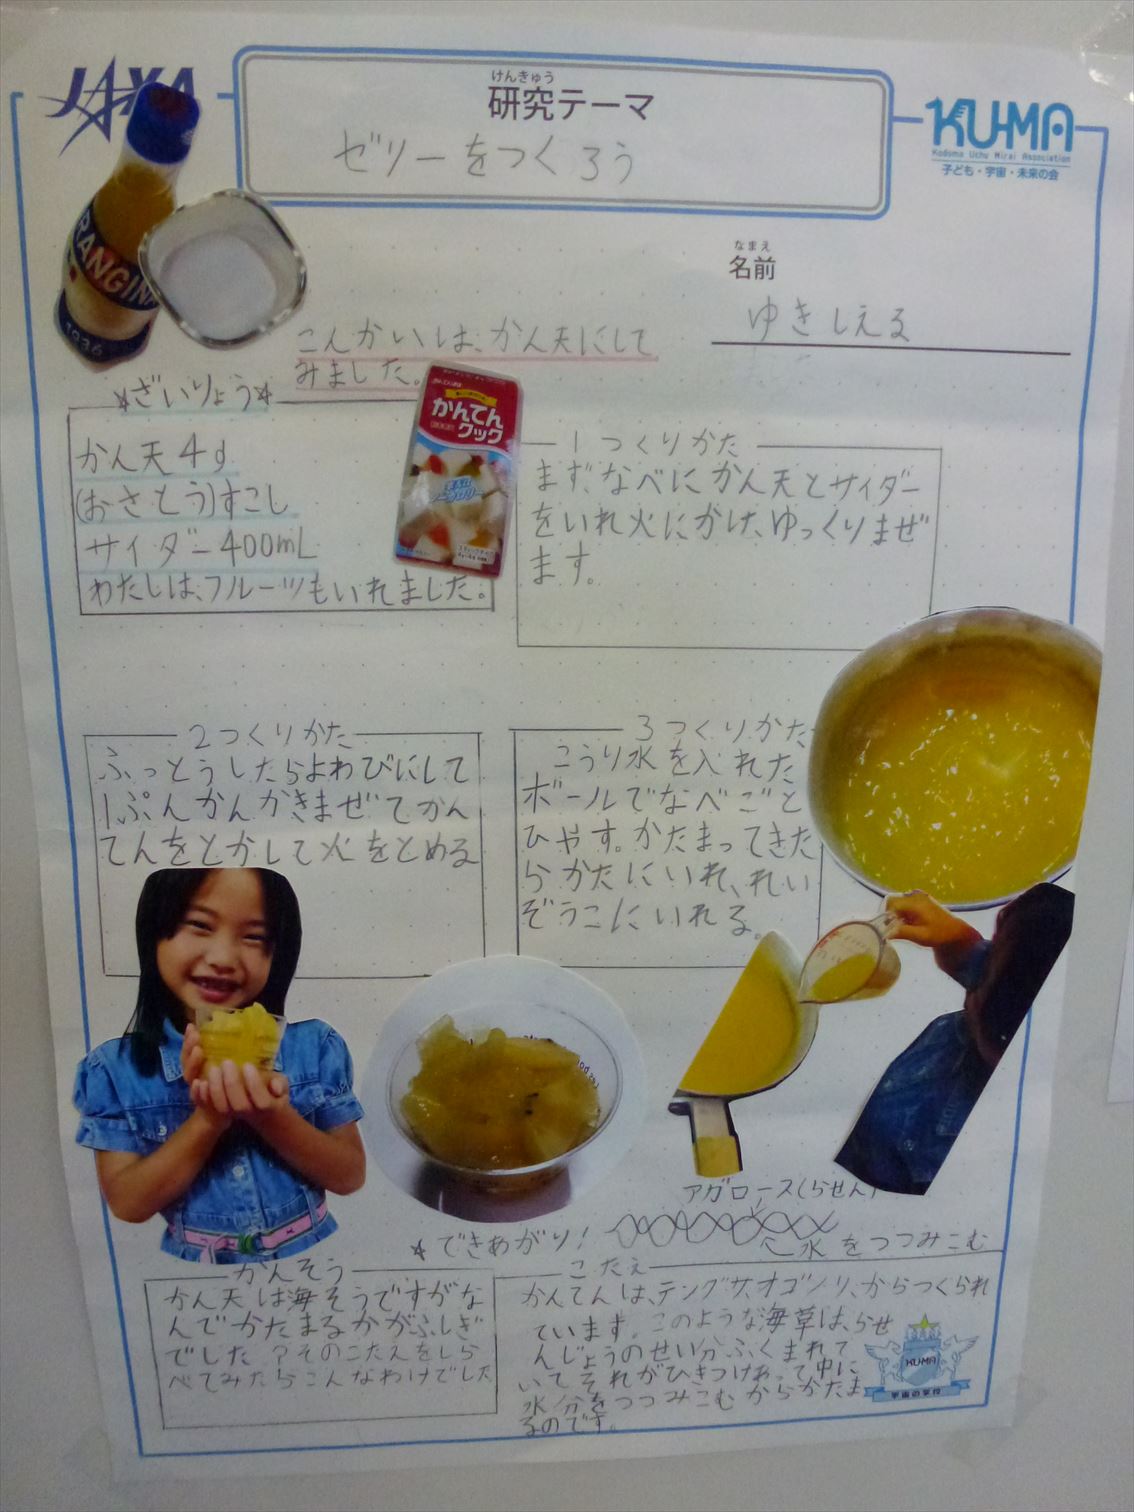 JAXA
けんきゅう
研究テーマ
ゼリーをつくろう
KU-MA
Kodomo Uchu Mirai Association
子ども・宇宙・未来の会
なまえ
名前
ゆきしえる
RANGIN
1936
こんかいは、かん天にして
みました。
かんてん
クック
☆ざいりょう☆
かん天4g
(おさとう)すこし
サイダー400mL
わたしは、フルーツもいれました。
1つくりかた
まず、なべにかん天とサイダー
をいれ火にかけ、ゆっくりまぜ
ます。
2つくりかた
ふっとうしたらよわびにして
1ぷんかんかきまぜてかん
てんをとかして火をとめる
3つくりかた
こうり水を入れた
ボールでなべごと
ひやす。かたまってきた
らかたにいれ、れい
ぞうこにいれる。
アガロース(らせん)
☆できあがり!
水をつつみこむ
かんそう
かん天は海そうですがな
んでかたまるかがふしぎ
でした?そのこたえをしら
べてみたらこんなわけでした
こたえ
かんてんは、テングサ、オゴノリ、からつくられ
ています。このような海草は、らせ
んじょうのせい分ふくまれて
いてそれがひきつけあって中に
水分をつつみこむからかたま
るのです。
KU-MA
宇宙の学校